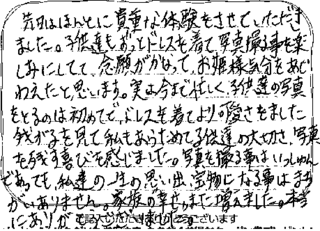 先日はほんとに貴重な体験をさせていただき
ました。子供達もずっとドレスを着て写真撮る事を楽
しみにしてて、念願がかなって、お姫様気分をあじ
わえたと思います。実は今まで忙しく、子供達の写真
をとるのは初めてで、ドレスを着てより可愛さをました
我が子を見て私もあらためて子供達の大切さ、写真
を残す喜びを感じました。写真を撮る事はいっしゅん
であっても、私達の一生の思い出、宝物になる事はまち
がいありません。家族の幸せがまた増えました。本当
にありがとうございました。